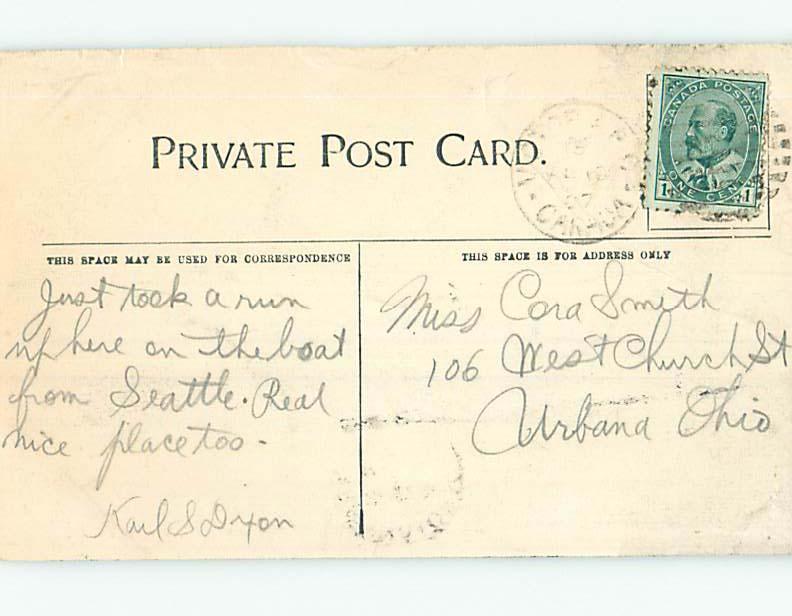 PRIVATE POST CARD.
CANADA POSTAGE
1 ONE CENT 1
CANADA
THIS SPACE MAY BE USED FOR CORRESPONDENCE
Just took a run
up here on the boat
from Seattle. Real
nice place too -
Karl S Dixon
THIS SPACE IS FOR ADDRESS ONLY
Miss Cora Smith
106 West Church St
Urbana Ohio